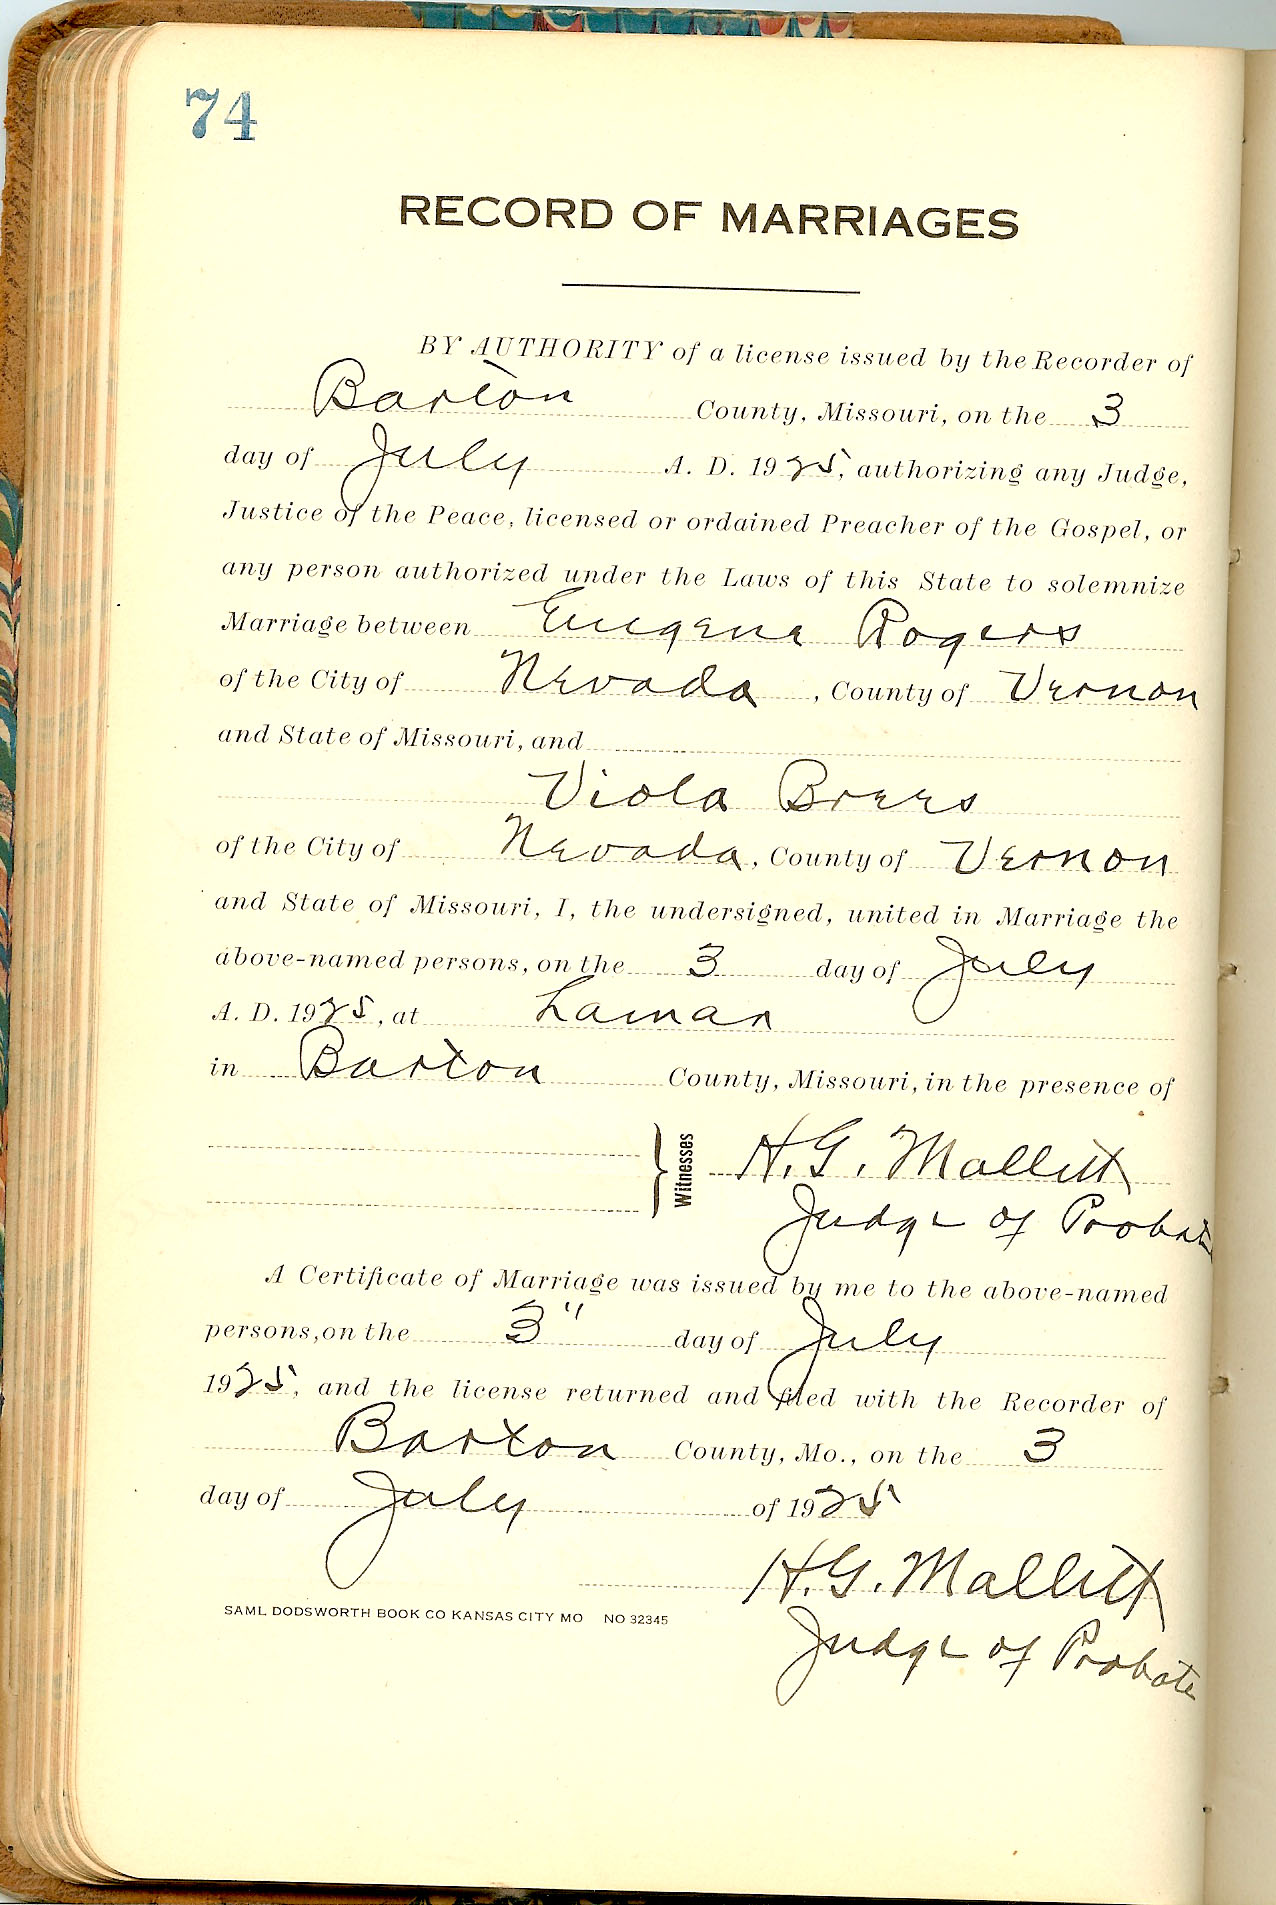 74
RECORD OF MARRIAGES
BY AUTHORITY of a license issued by the Recorder of
Barton County, Missouri, on the 3
day of July A. D. 1925, authorizing any Judge,
Justice of the Peace, licensed or ordained Preacher of the Gospel, or
any person authorized under the Laws of this State to solemnize
Marriage between Eugene Rogers
of the City of Nevada, County of Vernon
and State of Missouri, and
Viola
of the City of Nevada, County of Vernon
and State of Missouri, I, the undersigned, united in Marriage the
above-named persons, on the 3 day of July
A. D. 1925, at Lamar
in Barton County, Missouri, in the presence of
Witnesses H. G. Mallitt
Judge of Probate
A Certificate of Marriage was issued by me to the above-named
persons, on the 3" day of July
1925, and the license returned and filed with the Recorder of
Barton County, Mo., on the 3
day of July of 1925
H. G. Mallitt
SAML DODSWORTH BOOK CO KANSAS CITY MO NO 32345
Judge of Probate